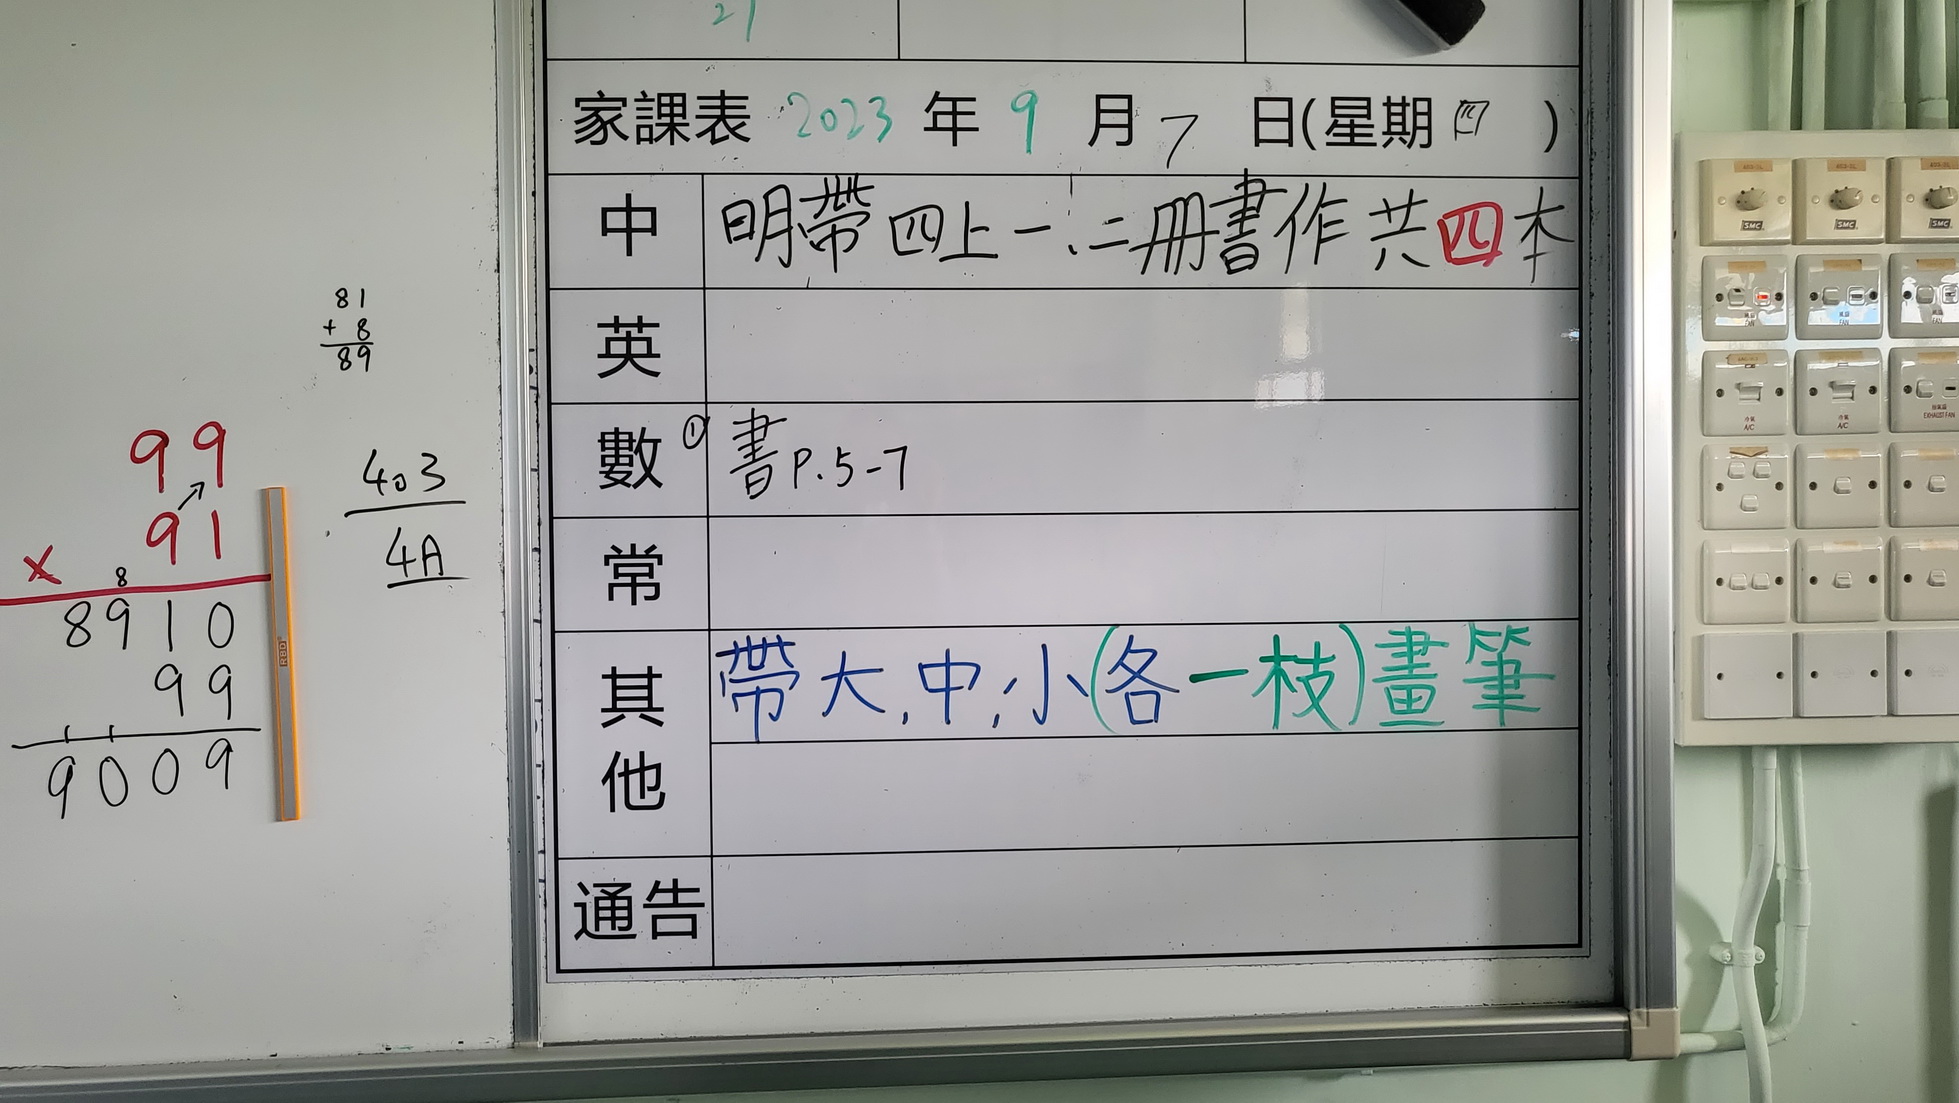 21
家課表 2023 年 9 月 7 日(星期四)
中 明帶四上一、二冊書作共四本
英
數 ① 書P.5-7
常
其他 帶大,中,小(各一枝)畫筆
通告
81
+ 8
89
99
× 91
8
8910
99
9009
403
4A
SMC
SMC
SMC
FAN
FAN
A/C
A/C
EXHAUST FAN